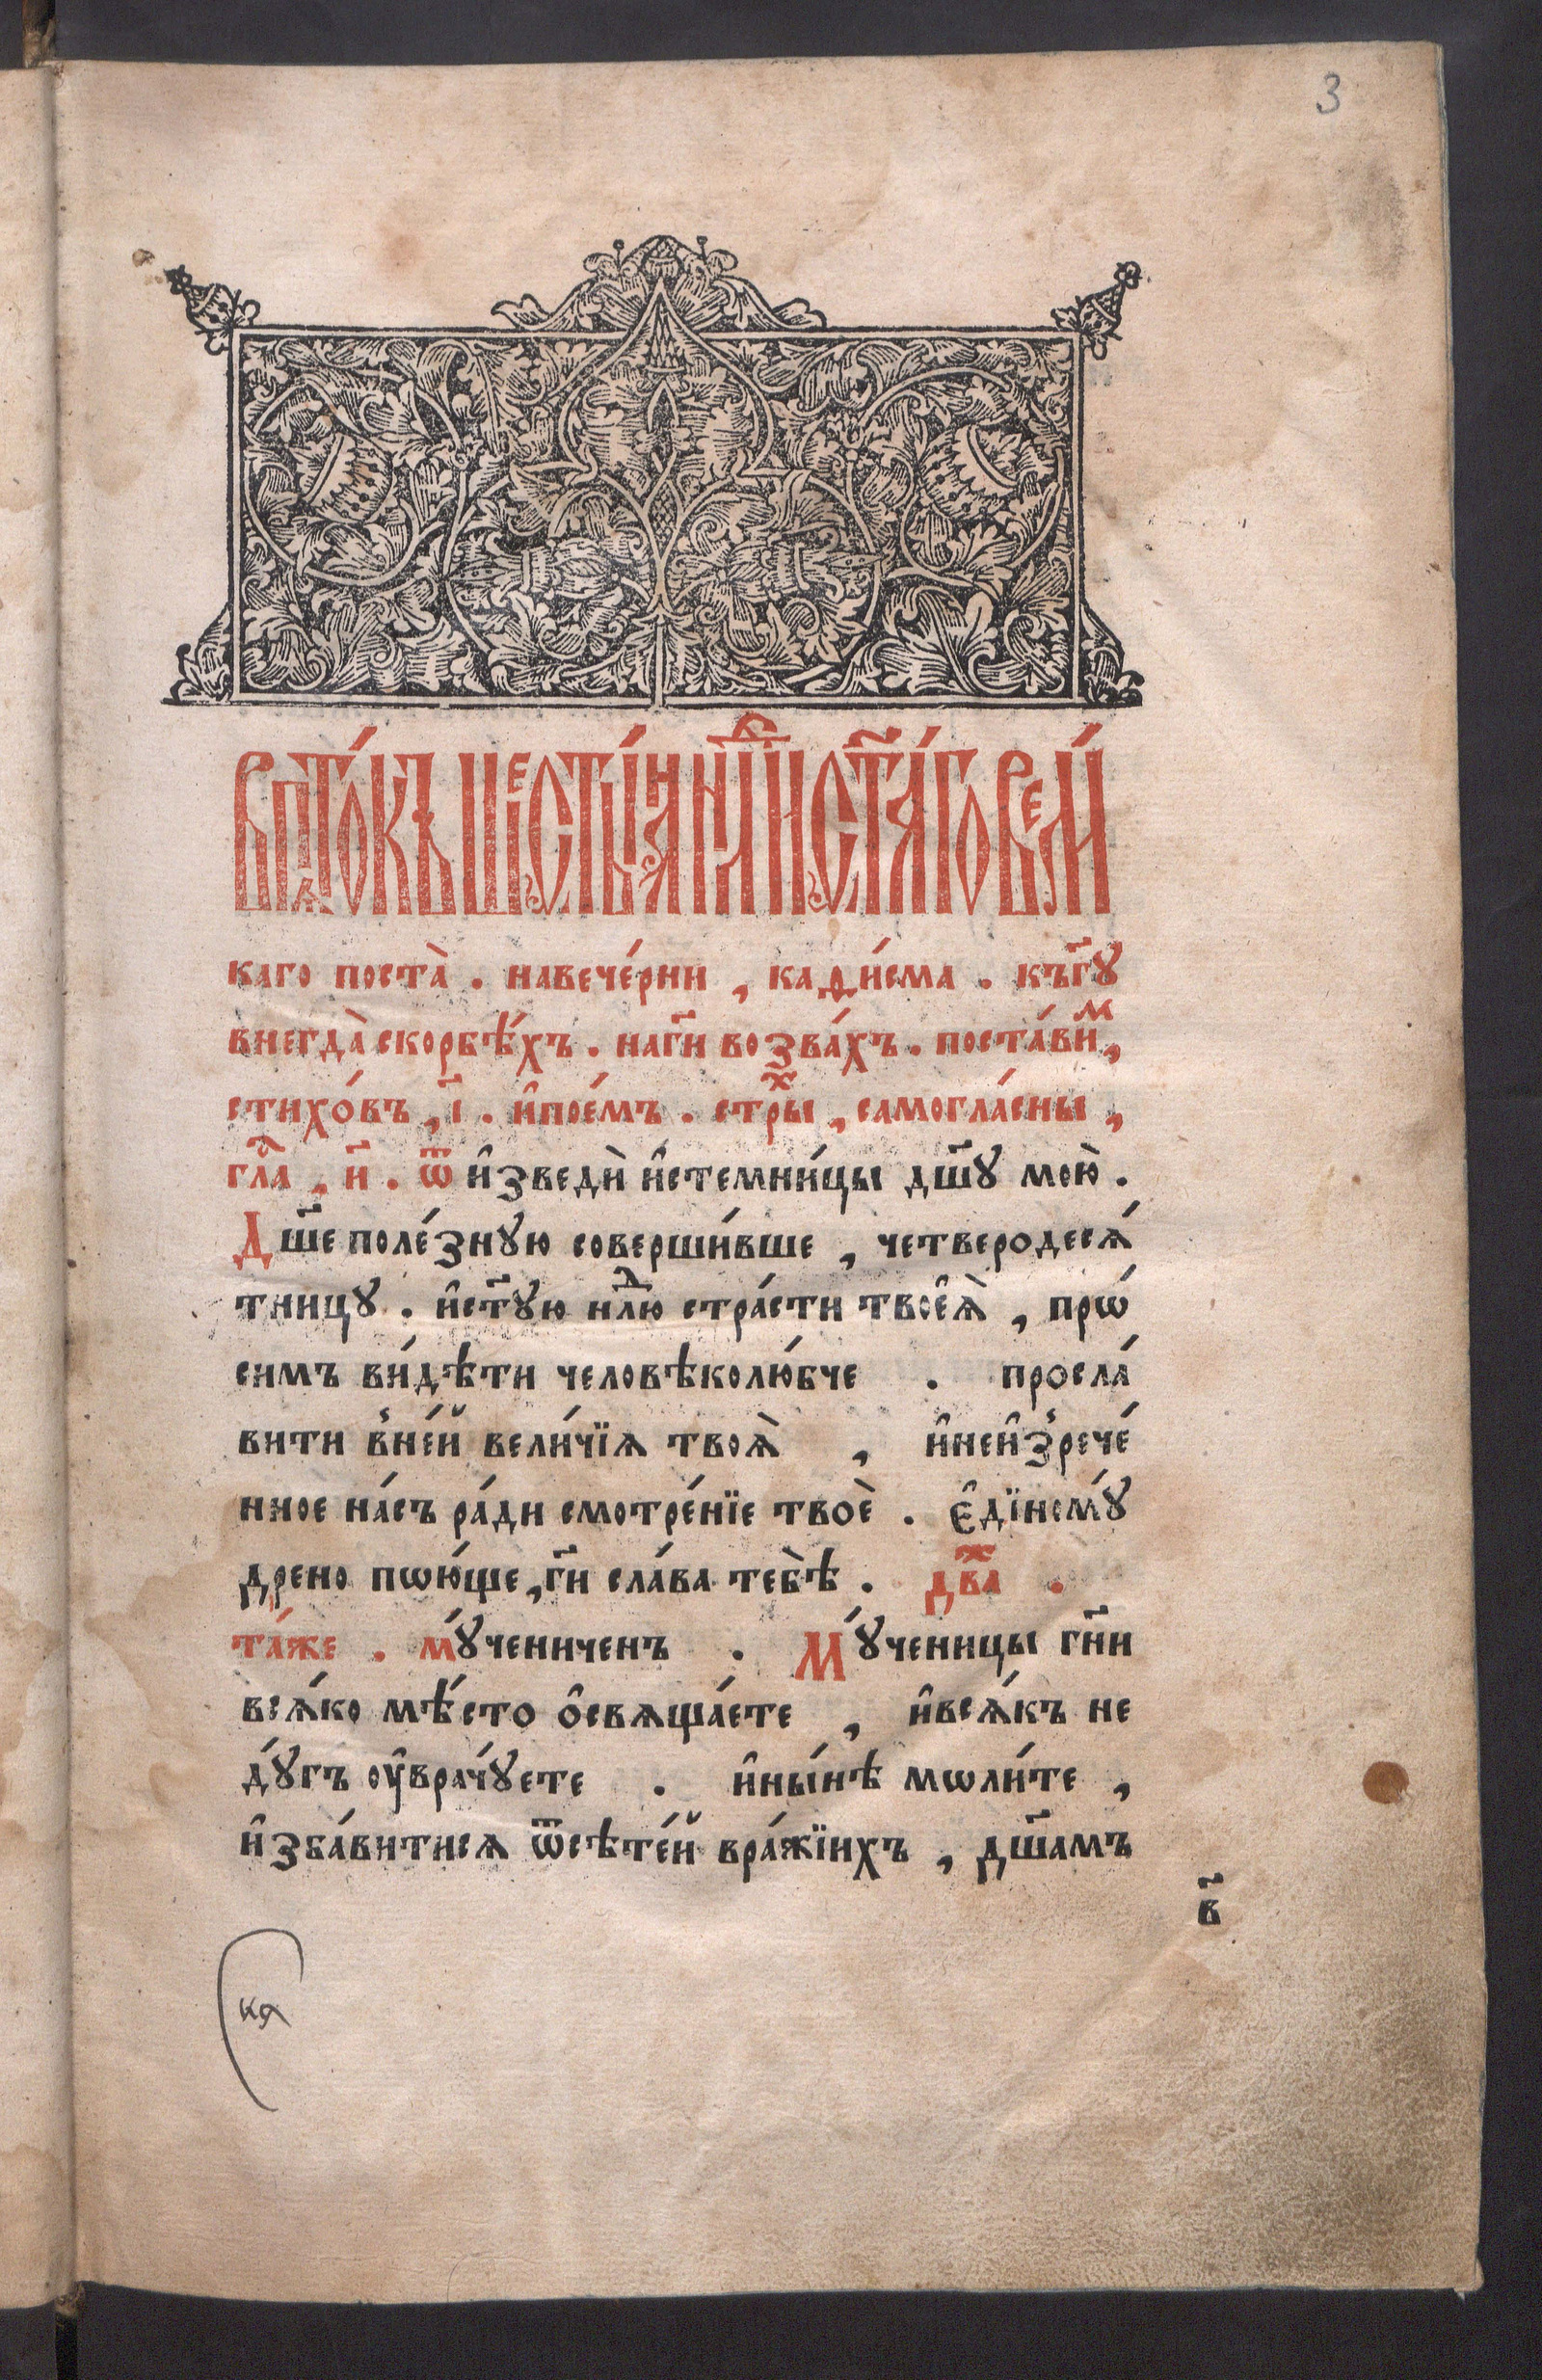 3
впѧто́къ шесты́ѧ нл҃и ст҃а́го вели́
каго поста̀ . навече́рни , каѳи́сма . къгꙋ҃
внегда̀ скорбѣ́хъ . нагн҃и возва́хъ . поста́виⷨ ,
стихо́въ , і҃ . и҆пое́мъ . стрⷯы , самогла́сны ,
глаⷭ҇ , и҃ . ѿ и҆зведѝ и҆стемни́цы дш҃ꙋ мою̀ .
Дш҃еполе́знꙋю соверши́вше , четверодесѧ́
тницꙋ . и҆ст҃ꙋю нлⷣю стра́сти твоеѧ̀ , прѡ́
симъ ви́дѣти человѣколю́бче . просла́
вити в̾не́й вели́чїѧ твоѧ̀ , и҆неи҆з̾рече́
нное на́съ ра́ди смотре́нїе твоѐ . є҆дїномꙋ́
дрено пѡю́ще , гн҃и сла́ва тебѣ̀ . двⷤа .
та́же . мꙋ́чениченъ . Мꙋ́ченицы гн҃и
всѧ́ко мѣ́сто ѻ҆свѧща́ете , и҆всѧ́къ не
дꙋ́гъ оу҆врачꙋ́ете . и҆ны́нѣ мѡли́те ,
и҆зба́витисѧ ѿсѣте́й вра́жїихъ , дш҃амъ
в҃
кя